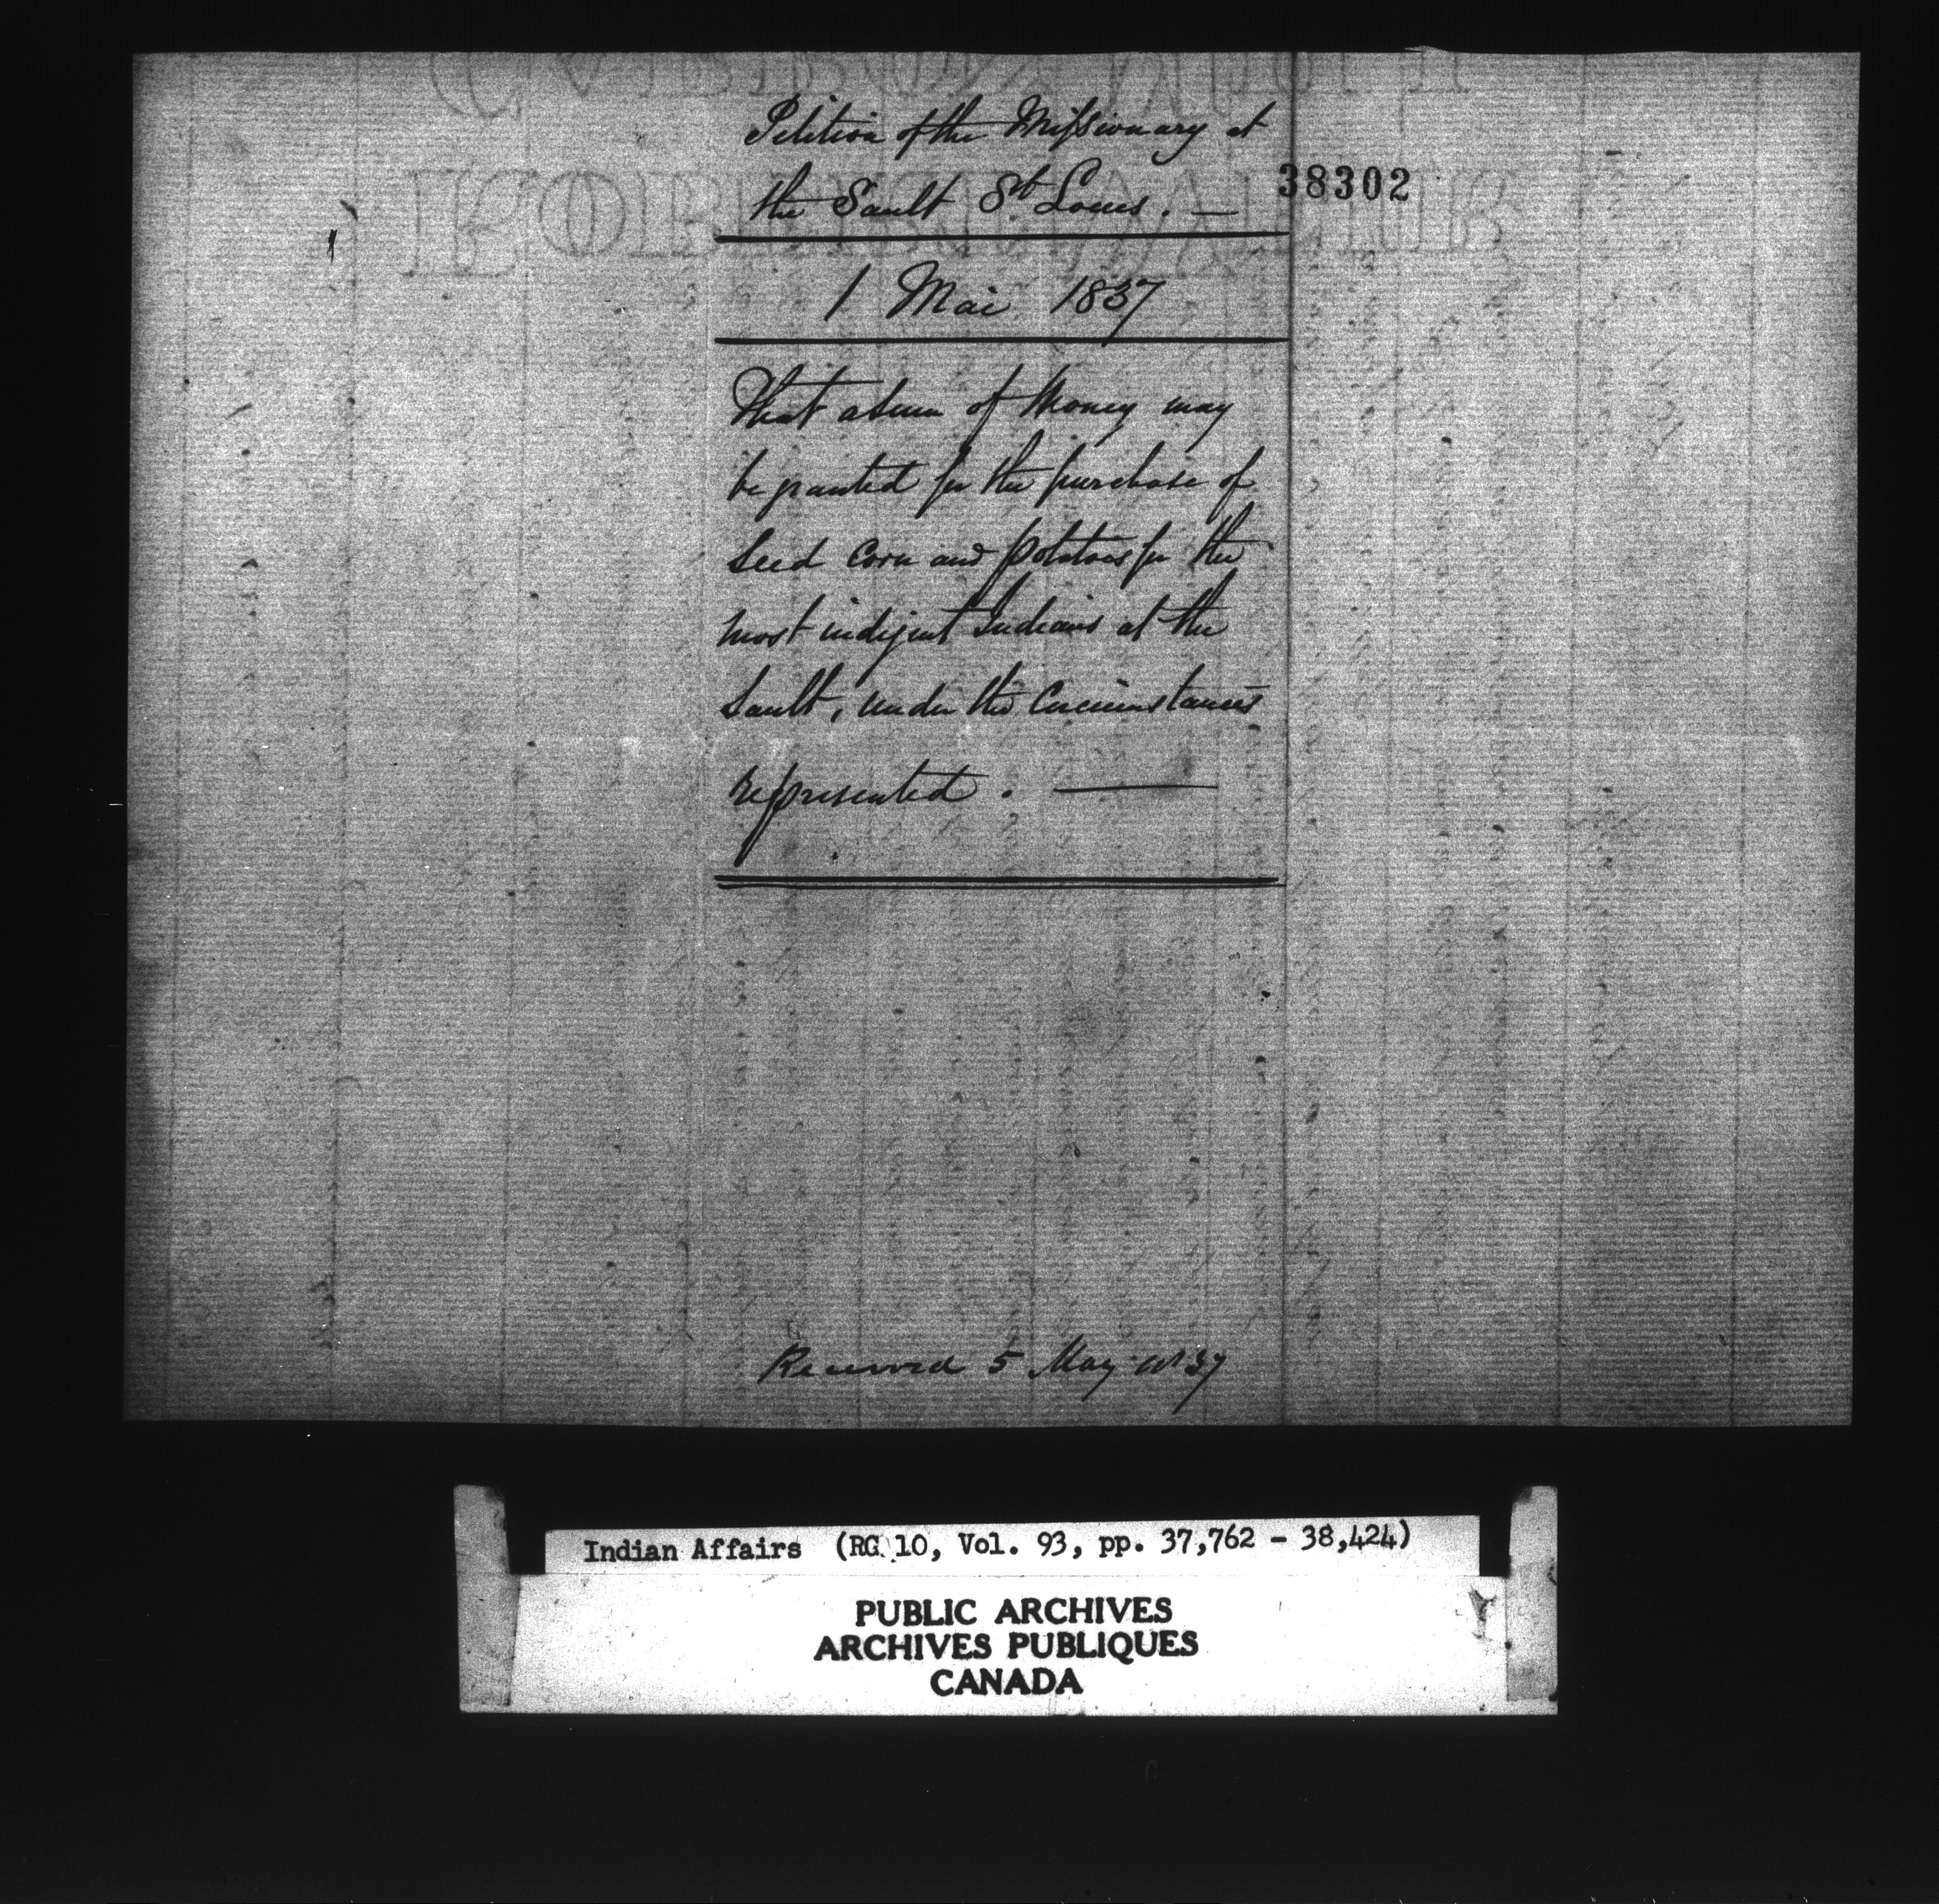 Petition of the Missionary at
the Sault St Louis. —
38302
1 Mai 1837
That a Sum of Money may
be granted for the purchase of
Seed Corn and potatoes for the
most indigent Indians at the
Sault, under the Circumstances
represented. —
Received 5 May 1837
Indian Affairs (RG 10, Vol. 93, pp. 37,762 - 38,424)
PUBLIC ARCHIVES
ARCHIVES PUBLIQUES
CANADA